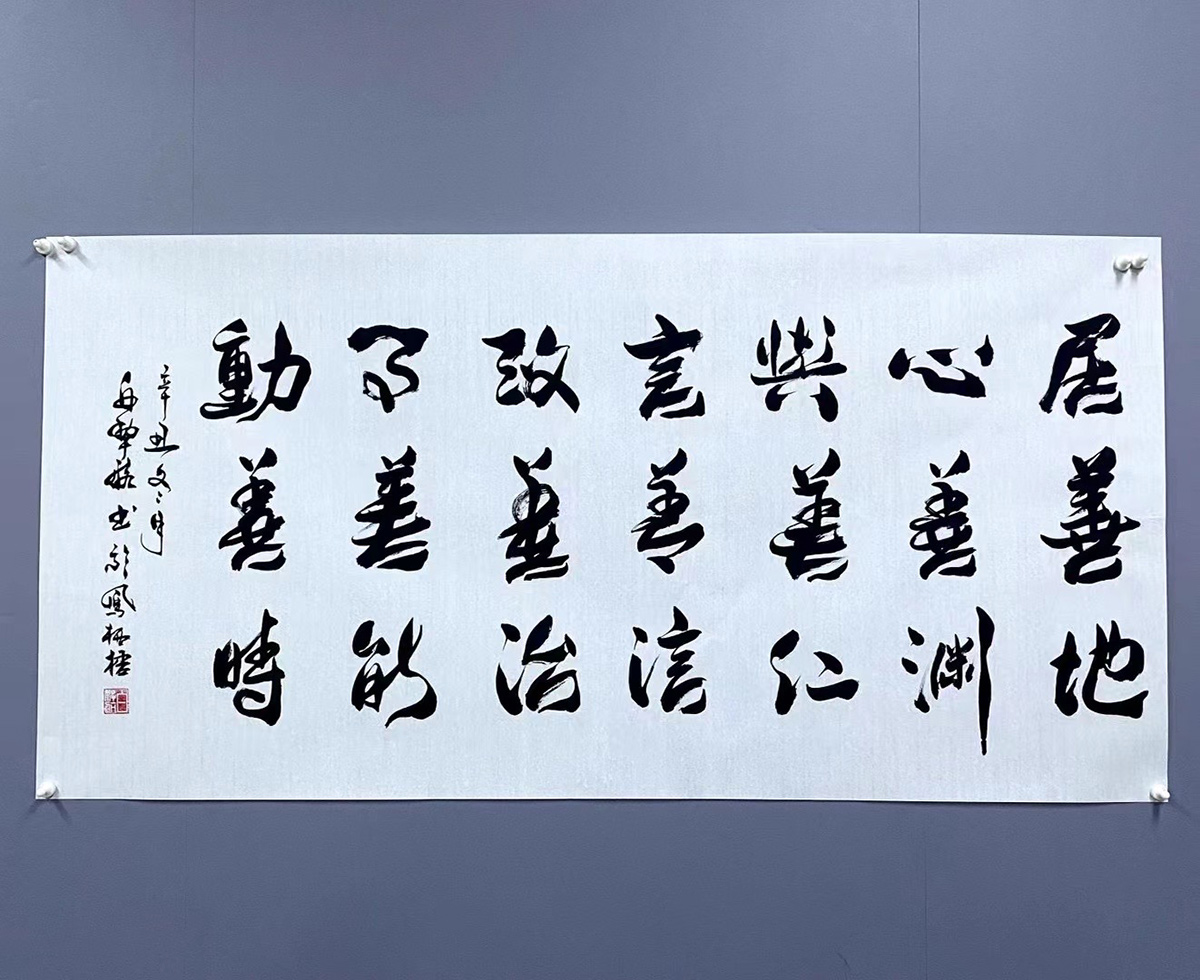 居善地
心善渊
與善仁
言善信
政善治
事善能
動善時
辛丑文之月